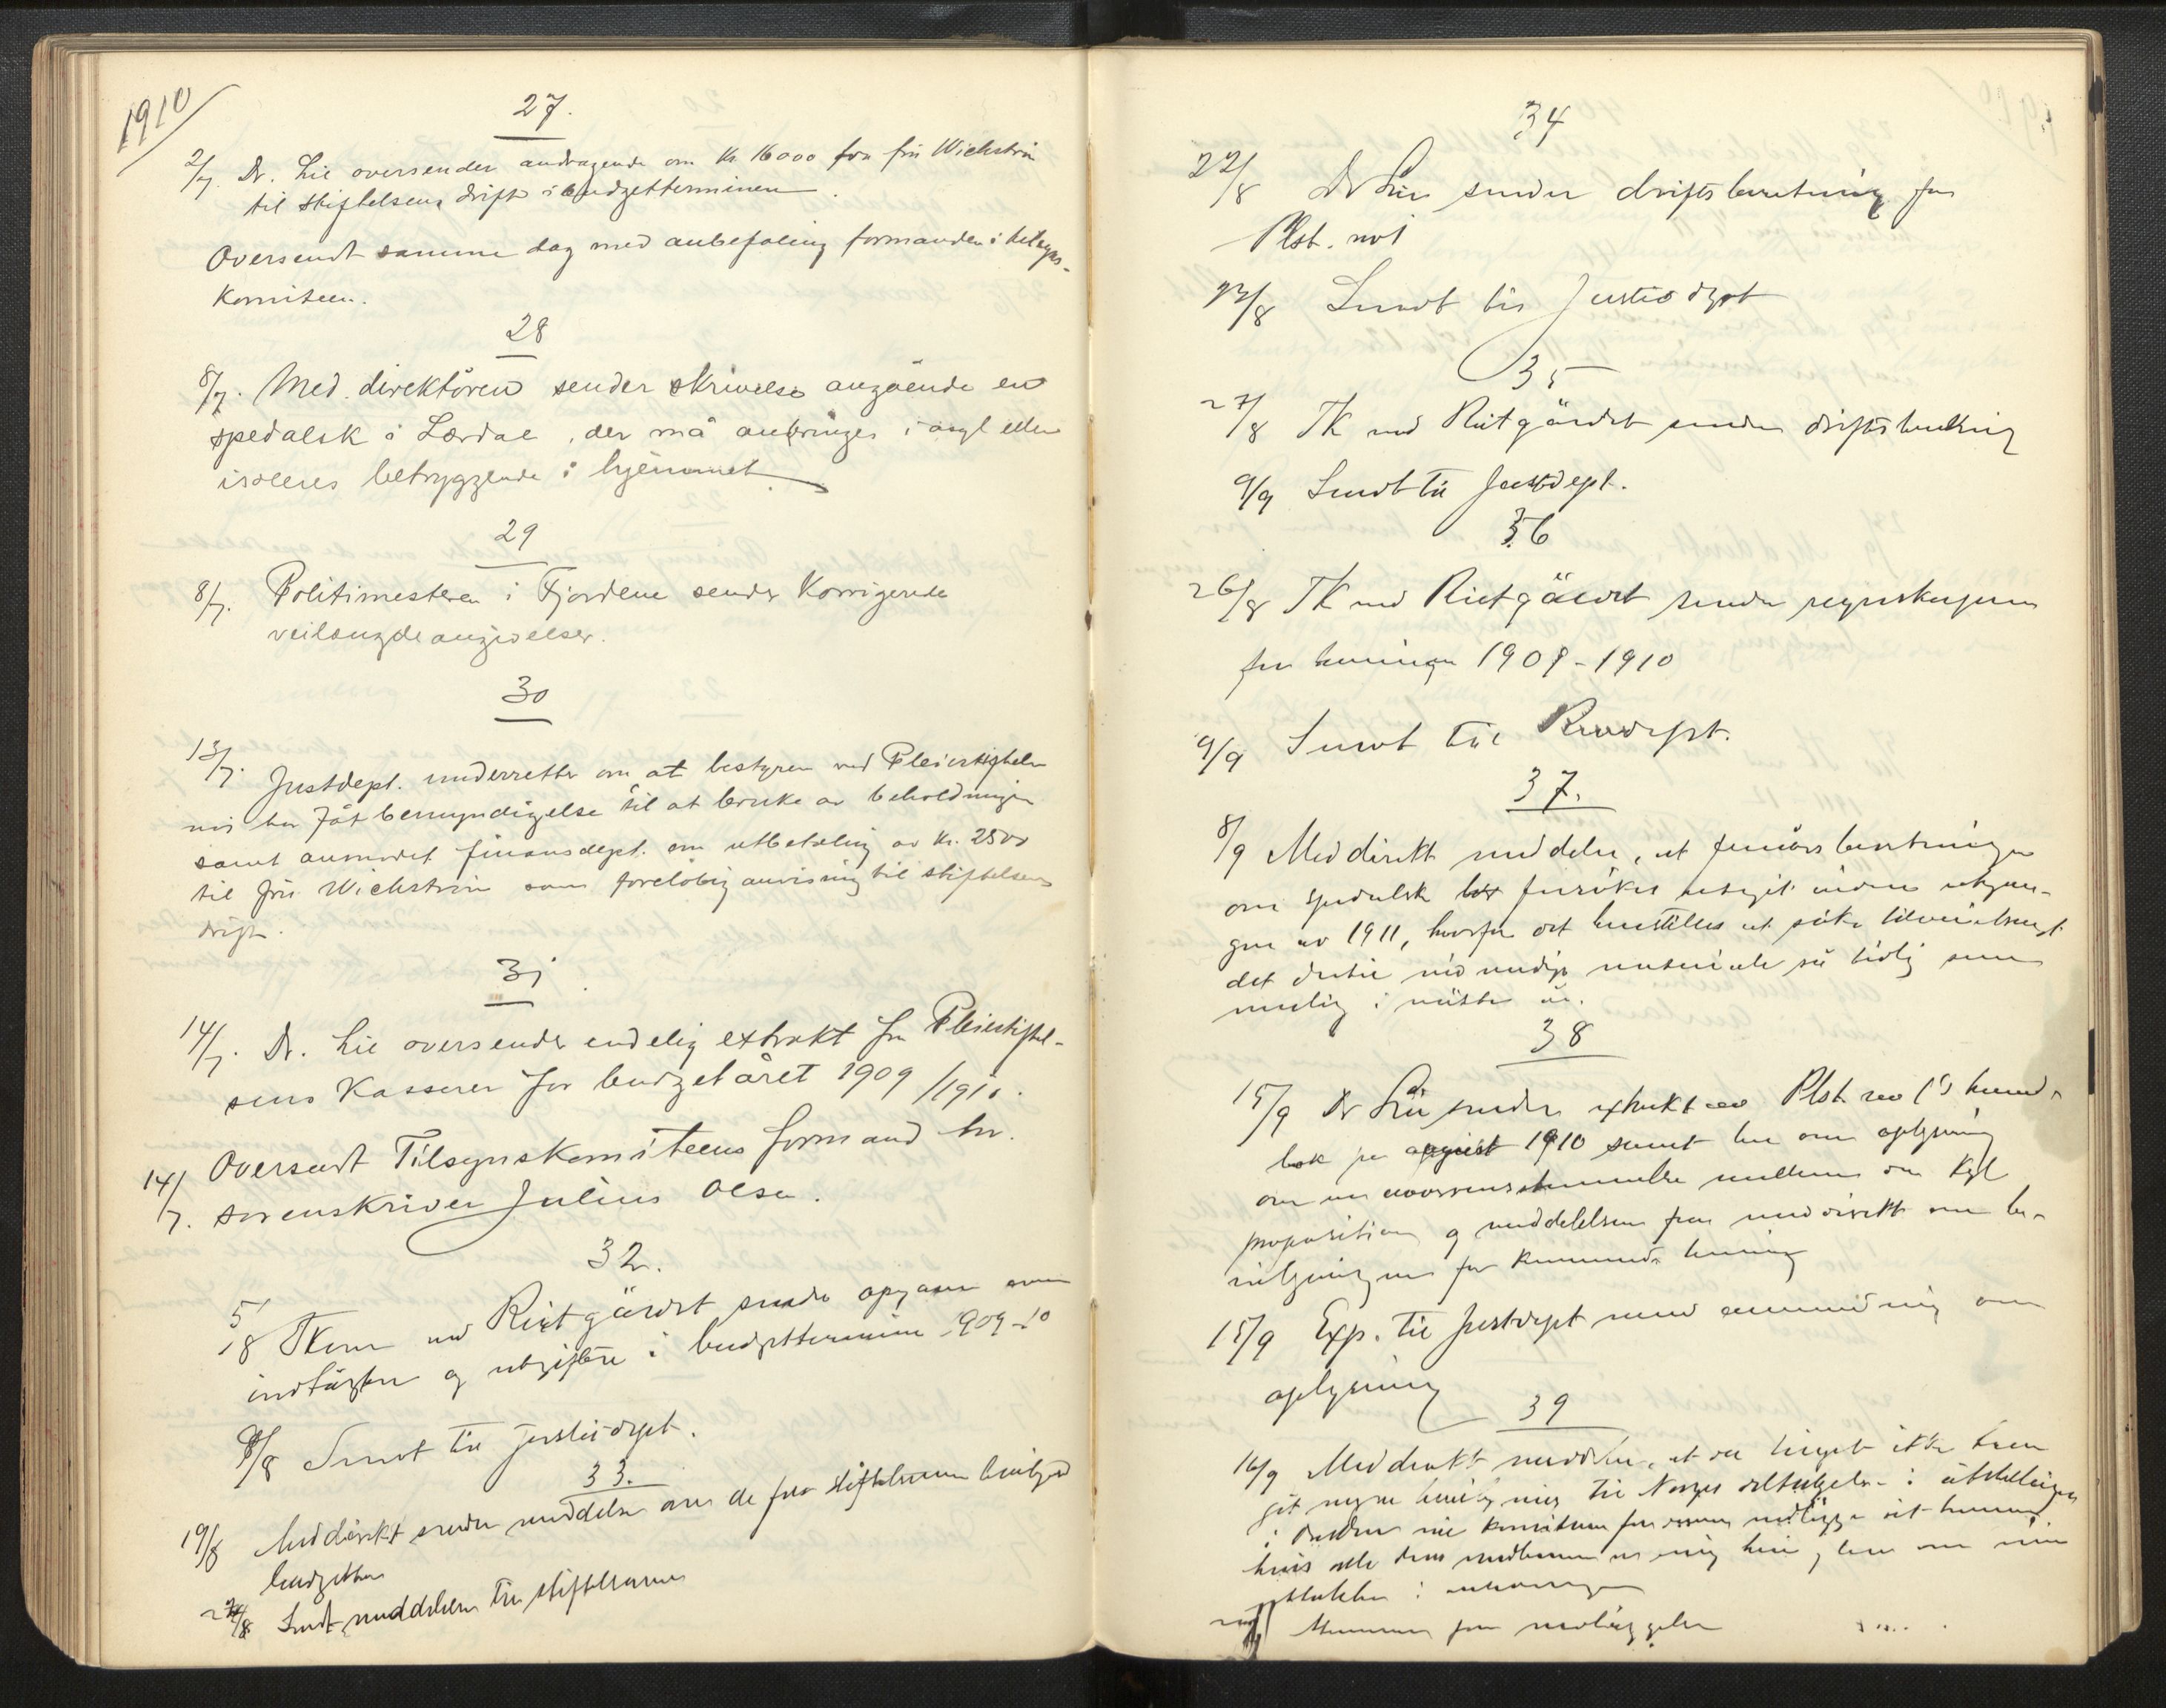 1910
27.
2/7. Dr. Lie oversender andragende om Kr. 16000 fra frk Wichstrøm
til Stiftelsens drift i budgetterminen
Oversendt samme dag med anbefaling formanden i tilsyns-
komiteen.
28
8/7. Med. direktören sender skrivelse angående en
spedalsk i Lærdal, der må anbringes i asyl eller
isoleres betryggende i hjemmet
29
8/7. Politimesteren i Fjordene sender Korrigerede
veilængdeangivelser.
30
13/7. Justdept. underretter om at bestyreren ved Pleiestiftelsen
no 1 har fåt bemyndigelse til at bruke av beholdningen
samt anmodet finansdept. om utbetaling av Kr. 2500
til frk Wichstrøm som foreløbig anvisning til stiftelsens
drift.
31
14/7. Dr. Lie oversender endelig extrakt fra Pleiestiftel-
sens Kasserer for budgetåret 1909/1910.
14/7. Oversendt Tilsynskomiteens formand hr.
sorenskriver Julius Olsen.
32.
5/8 TKom ved Reitgärdet sender opgaver over
indtägter og utgifter i budgetterminen 1909-10
8/8 Sendt til justisdept.
33.
19/8 Meddirekt sender meddelelse om de for stiftelserne
budgetter
24/8. Sendt meddelelsen til stiftelserne
34
22/8 Dr Lie sender driftsberetning for
Plst. no 1
23/8 Sendt til Justisdept
35
27/8 TK ved Reitgärdet sender driftsberetning
9/9 Sendt til Justdept.
36
26/8 TK ved Reitgärdet sender regnskaperne
for terminen 1909-1910
9/9 Sendt til Revdept.
37.
8/9 Meddirekt meddeler, at femårsberetningen
om spedalsk forsökes utgit inden utgan-
gen av 1911, hvorfor det henstilles at söke tilveiebragt
det dertil nödvendige materiale så tidlig som
mulig i näste år.
38
15/9 Dr Lie sender extrakt av Plst no 1's
bok for august 1910 samt om oplysning
om uoverensstemmelse mellem den Kgl
proposition og meddelelsen fra meddirekt om be-
vilgningen for kommende termin
15/9 Exp. til Justdept med anmodning om
oplysning
39
16/9 Meddirekt meddeler, at da tinget ikke
git nogen bevilgning til Norges deltagelse i utstillingen
i Dresden komiteen
hvis alle
i
for nedläggelse